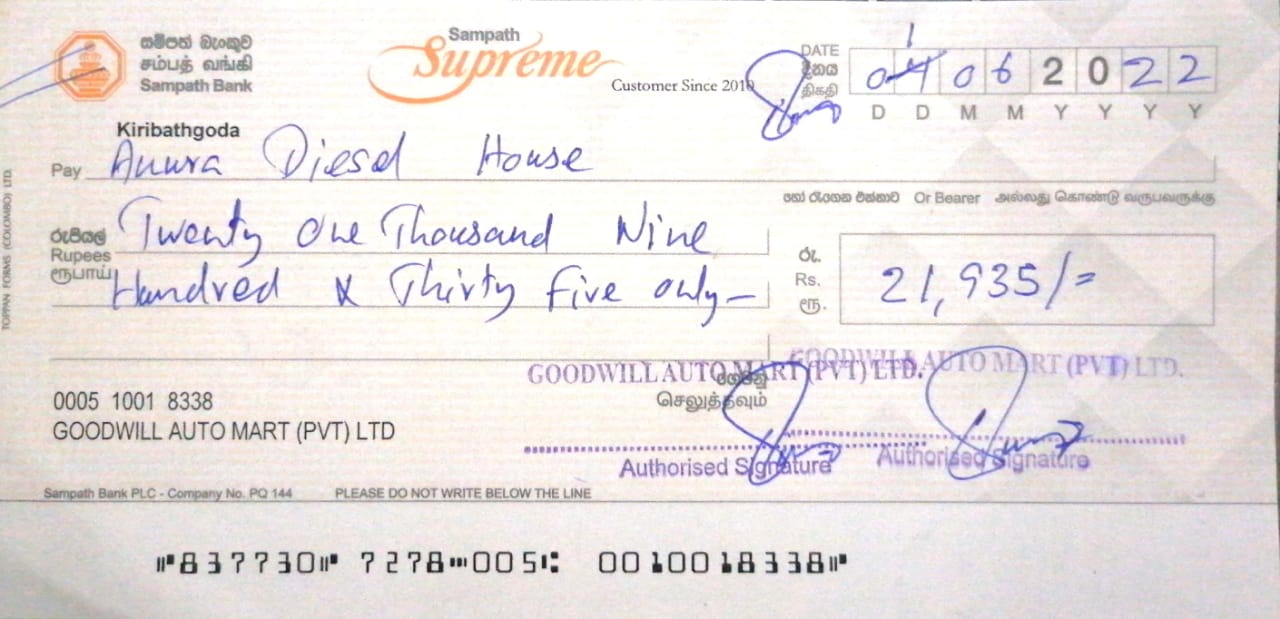 සම්පත් බැංකුව
சம்பத் வங்கி
Sampath Bank
Sampath
Supreme
Customer Since 2010
DATE
දිනය
திகதி
0 1 0 6 2 0 2 2
D D M M Y Y Y Y
Kiribathgoda
Pay Anura Diesel House
හෝ රැගෙන එන්නාට Or Bearer அல்லது கொண்டு வருபவருக்கு
රුපියල් Twenty One Thousand Nine
Rupees
ரூபாய் Hundred & Thirty Five only –
රු.
Rs. 21,935/=
ரூ.
GOODWILL AUTO MART (PVT) LTD. GOODWILL AUTO MART (PVT) LTD.
ගෙවනු
செலுத்தவும்
0005 1001 8338
GOODWILL AUTO MART (PVT) LTD
Authorised Signature Authorised Signature
Sampath Bank PLC - Company No. PQ 144 PLEASE DO NOT WRITE BELOW THE LINE
⑈837730⑈ 7278⑉005⑆ 0010018338⑈
TOPPAN FORMS (COLOMBO) LTD.